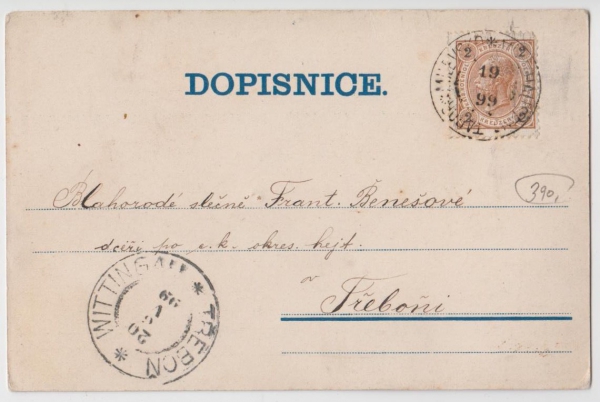 DOPISNICE.
2 2
19
99
390,
Blahorodé slečně Frant. Benešové
dceři po c. k. okres. hejt.
v
Třeboni
WITTINGAU * TŘEBOŇ *
20
99